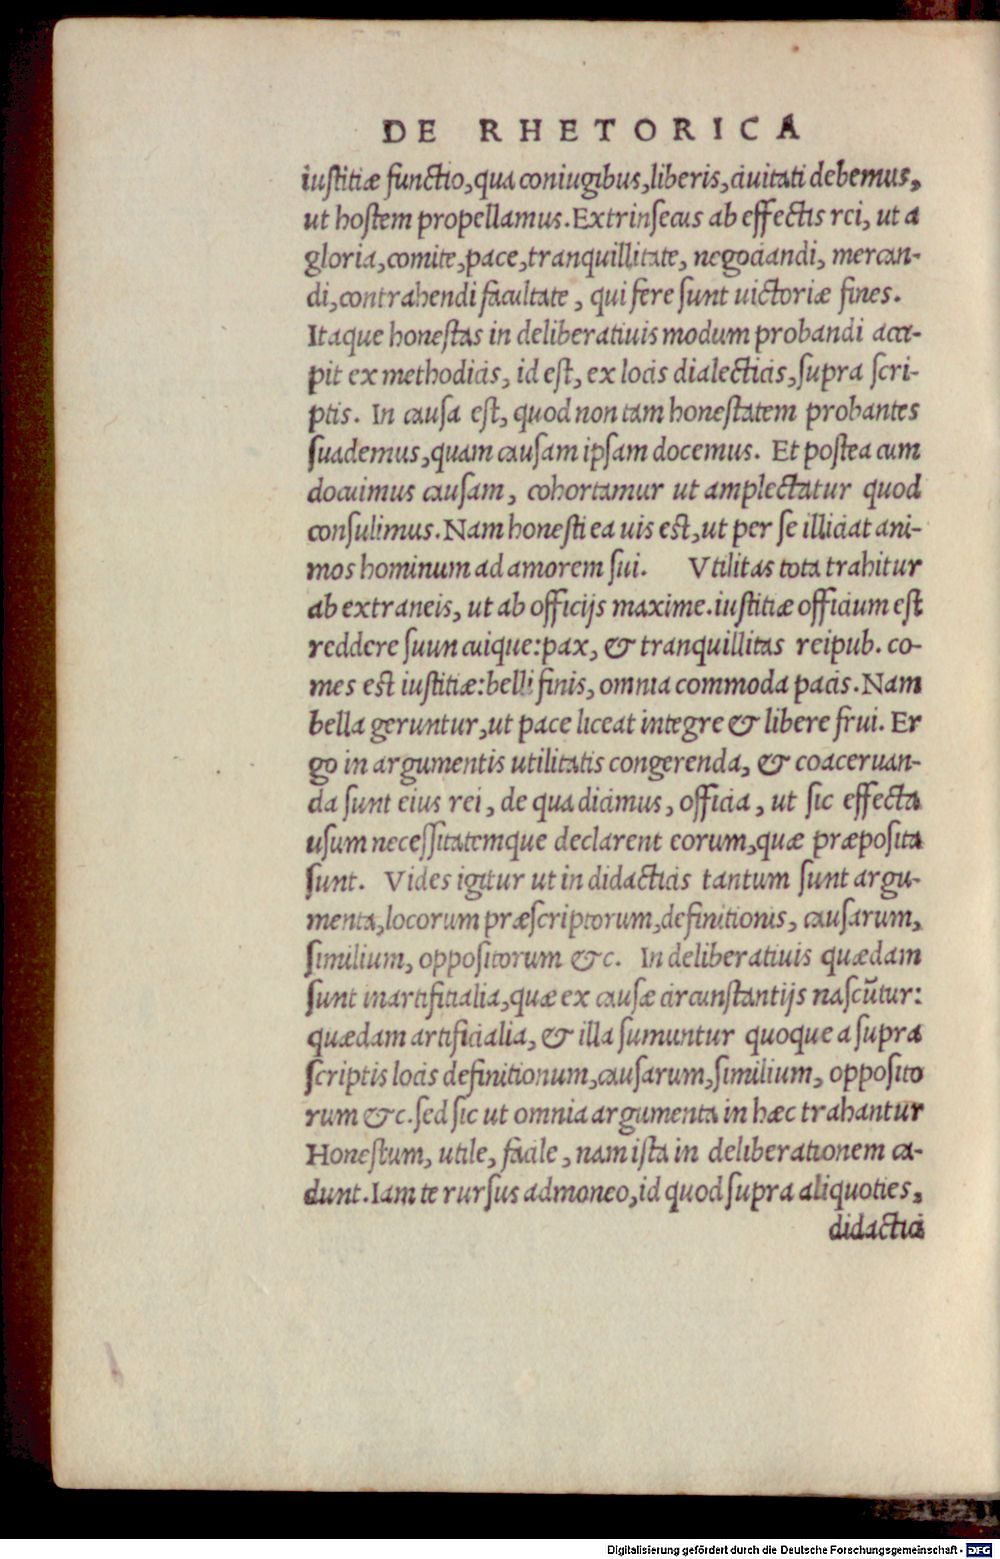 DE RHETORICA
iustitiæ functio,qua coniugibus,liberis,ciuitati debemus,
ut hostem propellamus.Extrinsecus ab effectis rei, ut a
gloria,comite,pace,tranquillitate, negociandi, mercan-
di,contrahendi facultate, qui fere sunt uictoriæ fines.
Itaque honestas in deliberatiuis modum probandi acci-
pit ex methodicis, id est, ex locis dialecticis,supra scri-
ptis. In causa est, quod non tam honestatem probantes
suademus,quam causam ipsam docemus. Et postea cum
docuimus causam, cohortamur ut amplectatur quod
consulimus.Nam honesti ea uis est,ut per se illiciat ani-
mos hominum ad amorem sui. Vtilitas tota trahitur
ab extraneis, ut ab officijs maxime.iustitiæ officium est
reddere suun cuique:pax, & tranquillitas reipub. co-
mes est iustitiæ:belli finis, omnia commoda pacis.Nam
bella geruntur,ut pace liceat integre & libere frui. Er
go in argumentis utilitatis congerenda, & coaceruan-
da sunt eius rei, de qua dicimus, officia, ut sic effecta
usum necessitatemque declarent eorum,quæ præposita
sunt. Vides igitur ut in didacticis tantum sunt argu-
menta,locorum præscriptorum,definitionis, causarum,
similium, oppositorum &c. In deliberatiuis quædam
sunt inartifitialia,quæ ex causæ circunstantijs nascūtur:
quædam artificialia, & illa sumuntur quoque a supra
scriptis locis definitionum,causarum,similium, opposito
rum &c.sed sic ut omnia argumenta in hæc trahantur
Honestum, utile, facile, nam ista in deliberationem ca-
dunt.Iam te rursus admoneo,id quod supra aliquoties,
didactici
Digitalisierung gefördert durch die Deutsche Forschungsgemeinschaft - DFG